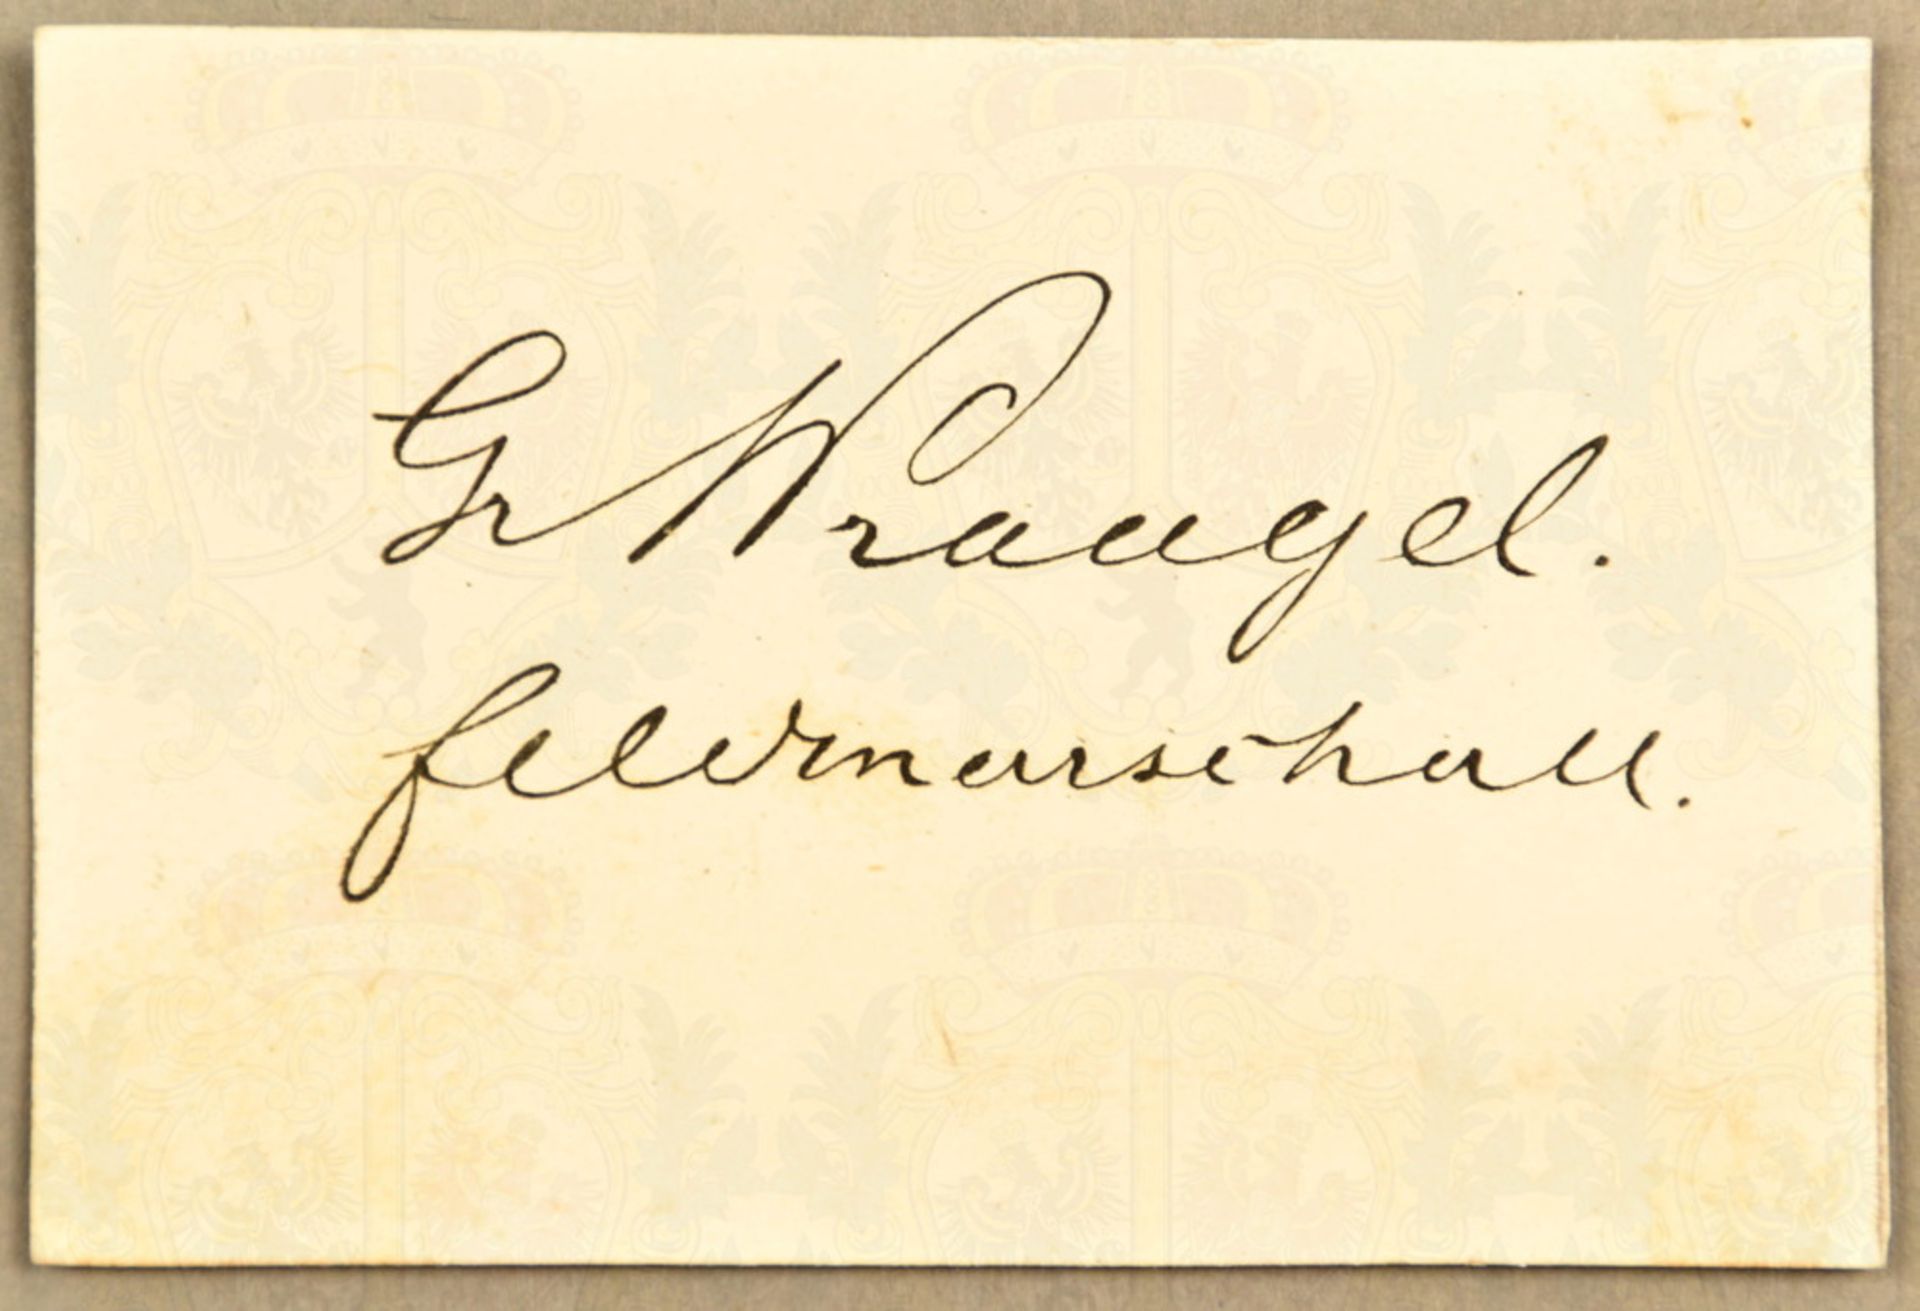 Gr Wrangel.
feldmarschall.